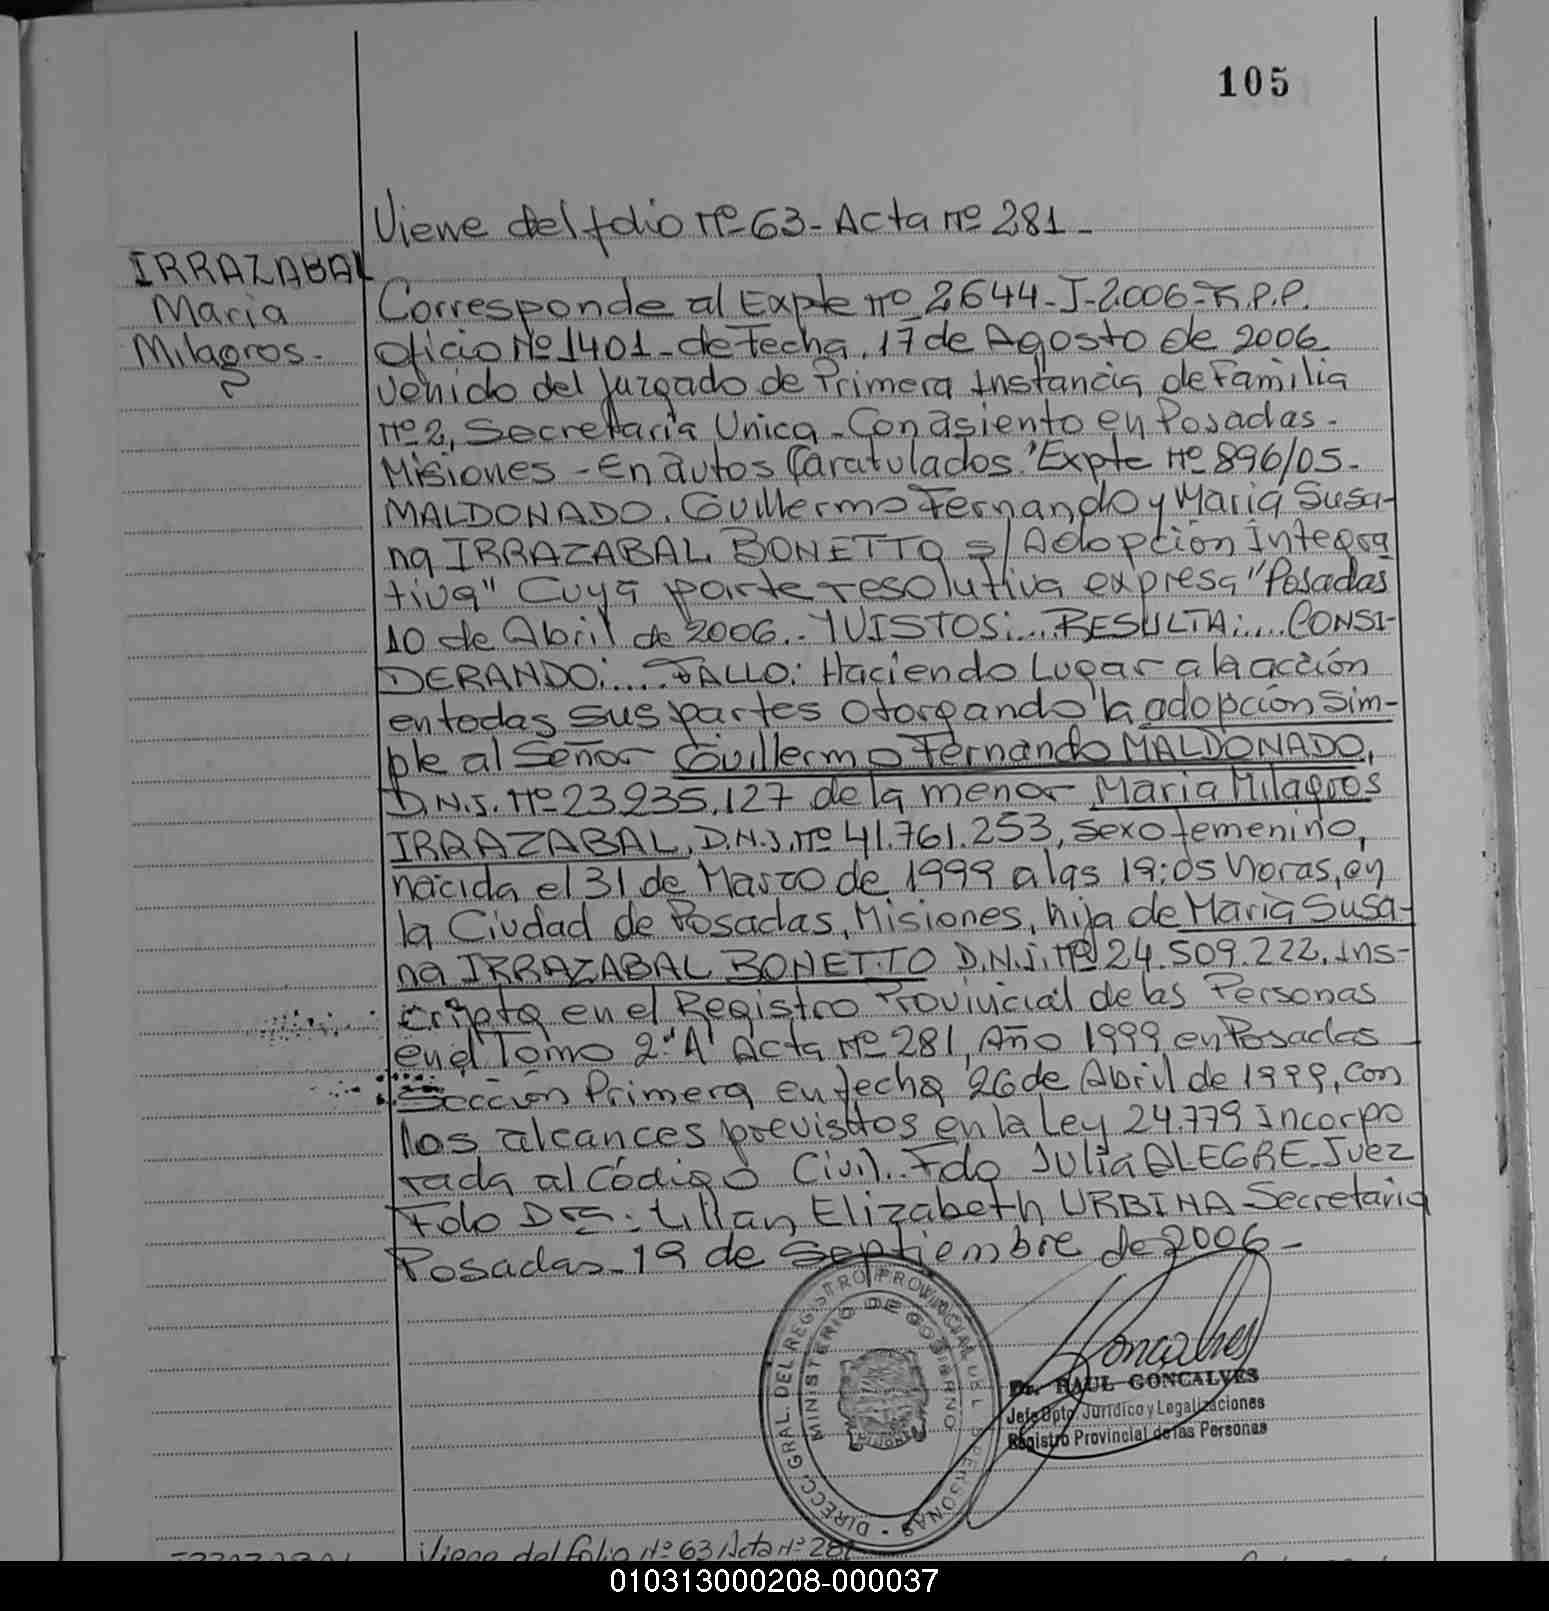 105
Viene del folio Nº 63 - Acta Nº 281 -
IRRAZABAL
Maria
Milagros -
Corresponde al Expte Nº 2644-J-2006-R.P.P.
Oficio Nº 1401 - de Fecha, 17 de Agosto de 2006
venido del Juzgado de Primera Instancia de Familia
Nº 2, Secretaria Unica - Con asiento en Posadas -
Misiones - En autos Caratulados "Expte Nº 896/05 -
MALDONADO, Guillermo Fernando y Maria Susa-
na IRRAZABAL BONETTO s/ Adopción Integra
tiva" Cuya parte resolutiva expresa "Posadas
10 de Abril de 2006.. Y VISTOS:... RESULTA:.... CONSI-
DERANDO:.... FALLO: Haciendo Lugar a la acción
en todas sus partes otorgando la adopción Sim-
ple al Señor Guillermo Fernando MALDONADO,
D.N.I. Nº 23.235.127 de la menor Maria Milagros
IRRAZABAL, D.N.I. Nº 41.761.253, sexo femenino,
nacida el 31 de Marzo de 1999 a las 19:05 horas, en
la Ciudad de Posadas, Misiones, hija de Maria Susa-
na IRRAZABAL BONETTO D.N.I. Nº 24.509.222, Ins-
cripta en el Registro Provincial de las Personas
en el Tomo 2º "A" Acta Nº 281, Año 1999 en Posadas
Sección Primera en fecha 26 de Abril de 1999, con
los alcances previstos en la Ley 24.779 Incorpo
rada al Código Civil.. Fdo Julia ALEGRE - Juez
Fdo Dra. Lilian Elizabeth URBINA Secretaria
Posadas - 19 de Septiembre de 2006 -
DIRECC. GRAL. DEL REGISTRO PROVINCIAL DE LAS PERSONAS
MINISTERIO DE GOBIERNO
Goncalves
Dr. RAUL GONCALVES
Jefe Dpto. Jurídico y Legalizaciones
Registro Provincial de las Personas
IRRAZABAL
Viene del folio Nº 63 Acta Nº 281
010313000208-000037